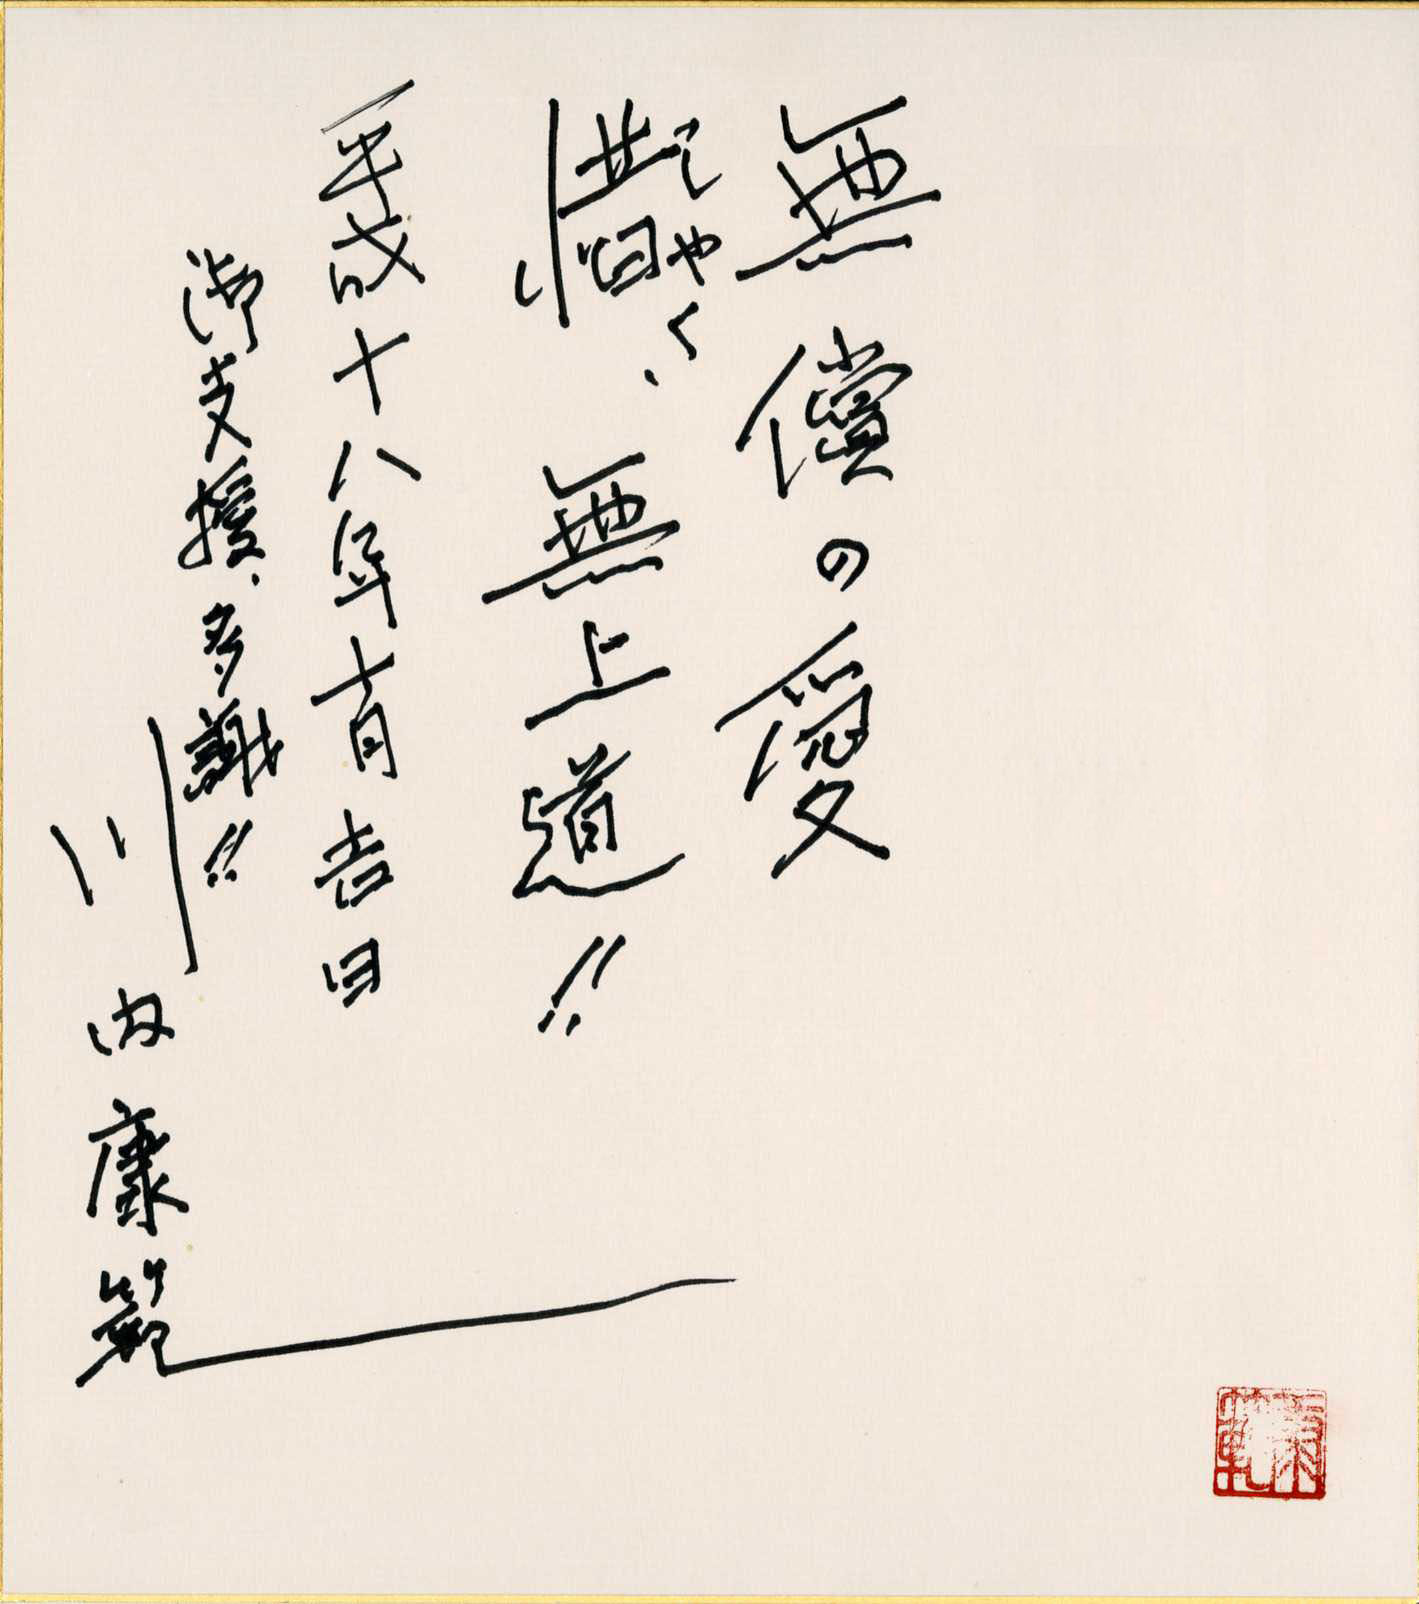 無償の愛
惜しやく、無上道!!
平成十八年十月吉日
御支援、多謝!!
川内康範
康範